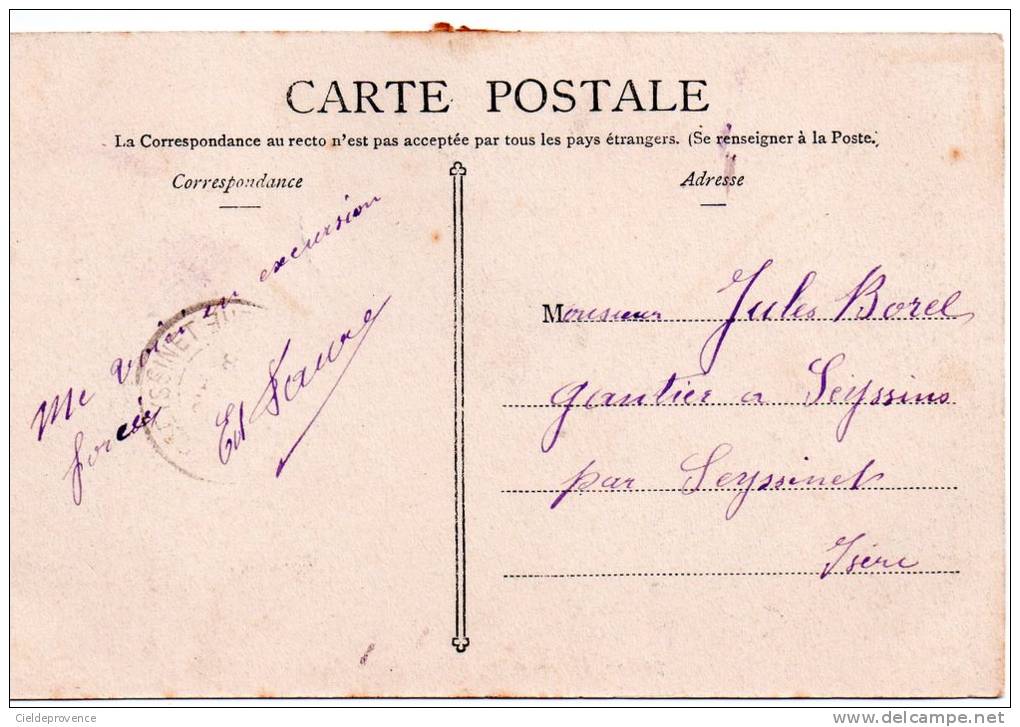 CARTE POSTALE
La Correspondance au recto n'est pas acceptée par tous les pays étrangers. (Se renseigner à la Poste.)
Correspondance
Me voici en excursion
forcée
Ed Faure
Adresse
Monsieur Jules Borel
gantier a Seyssins
par Seyssinet
Isère
SEYSSINET
Cieldeprovence
www.delcampe.net